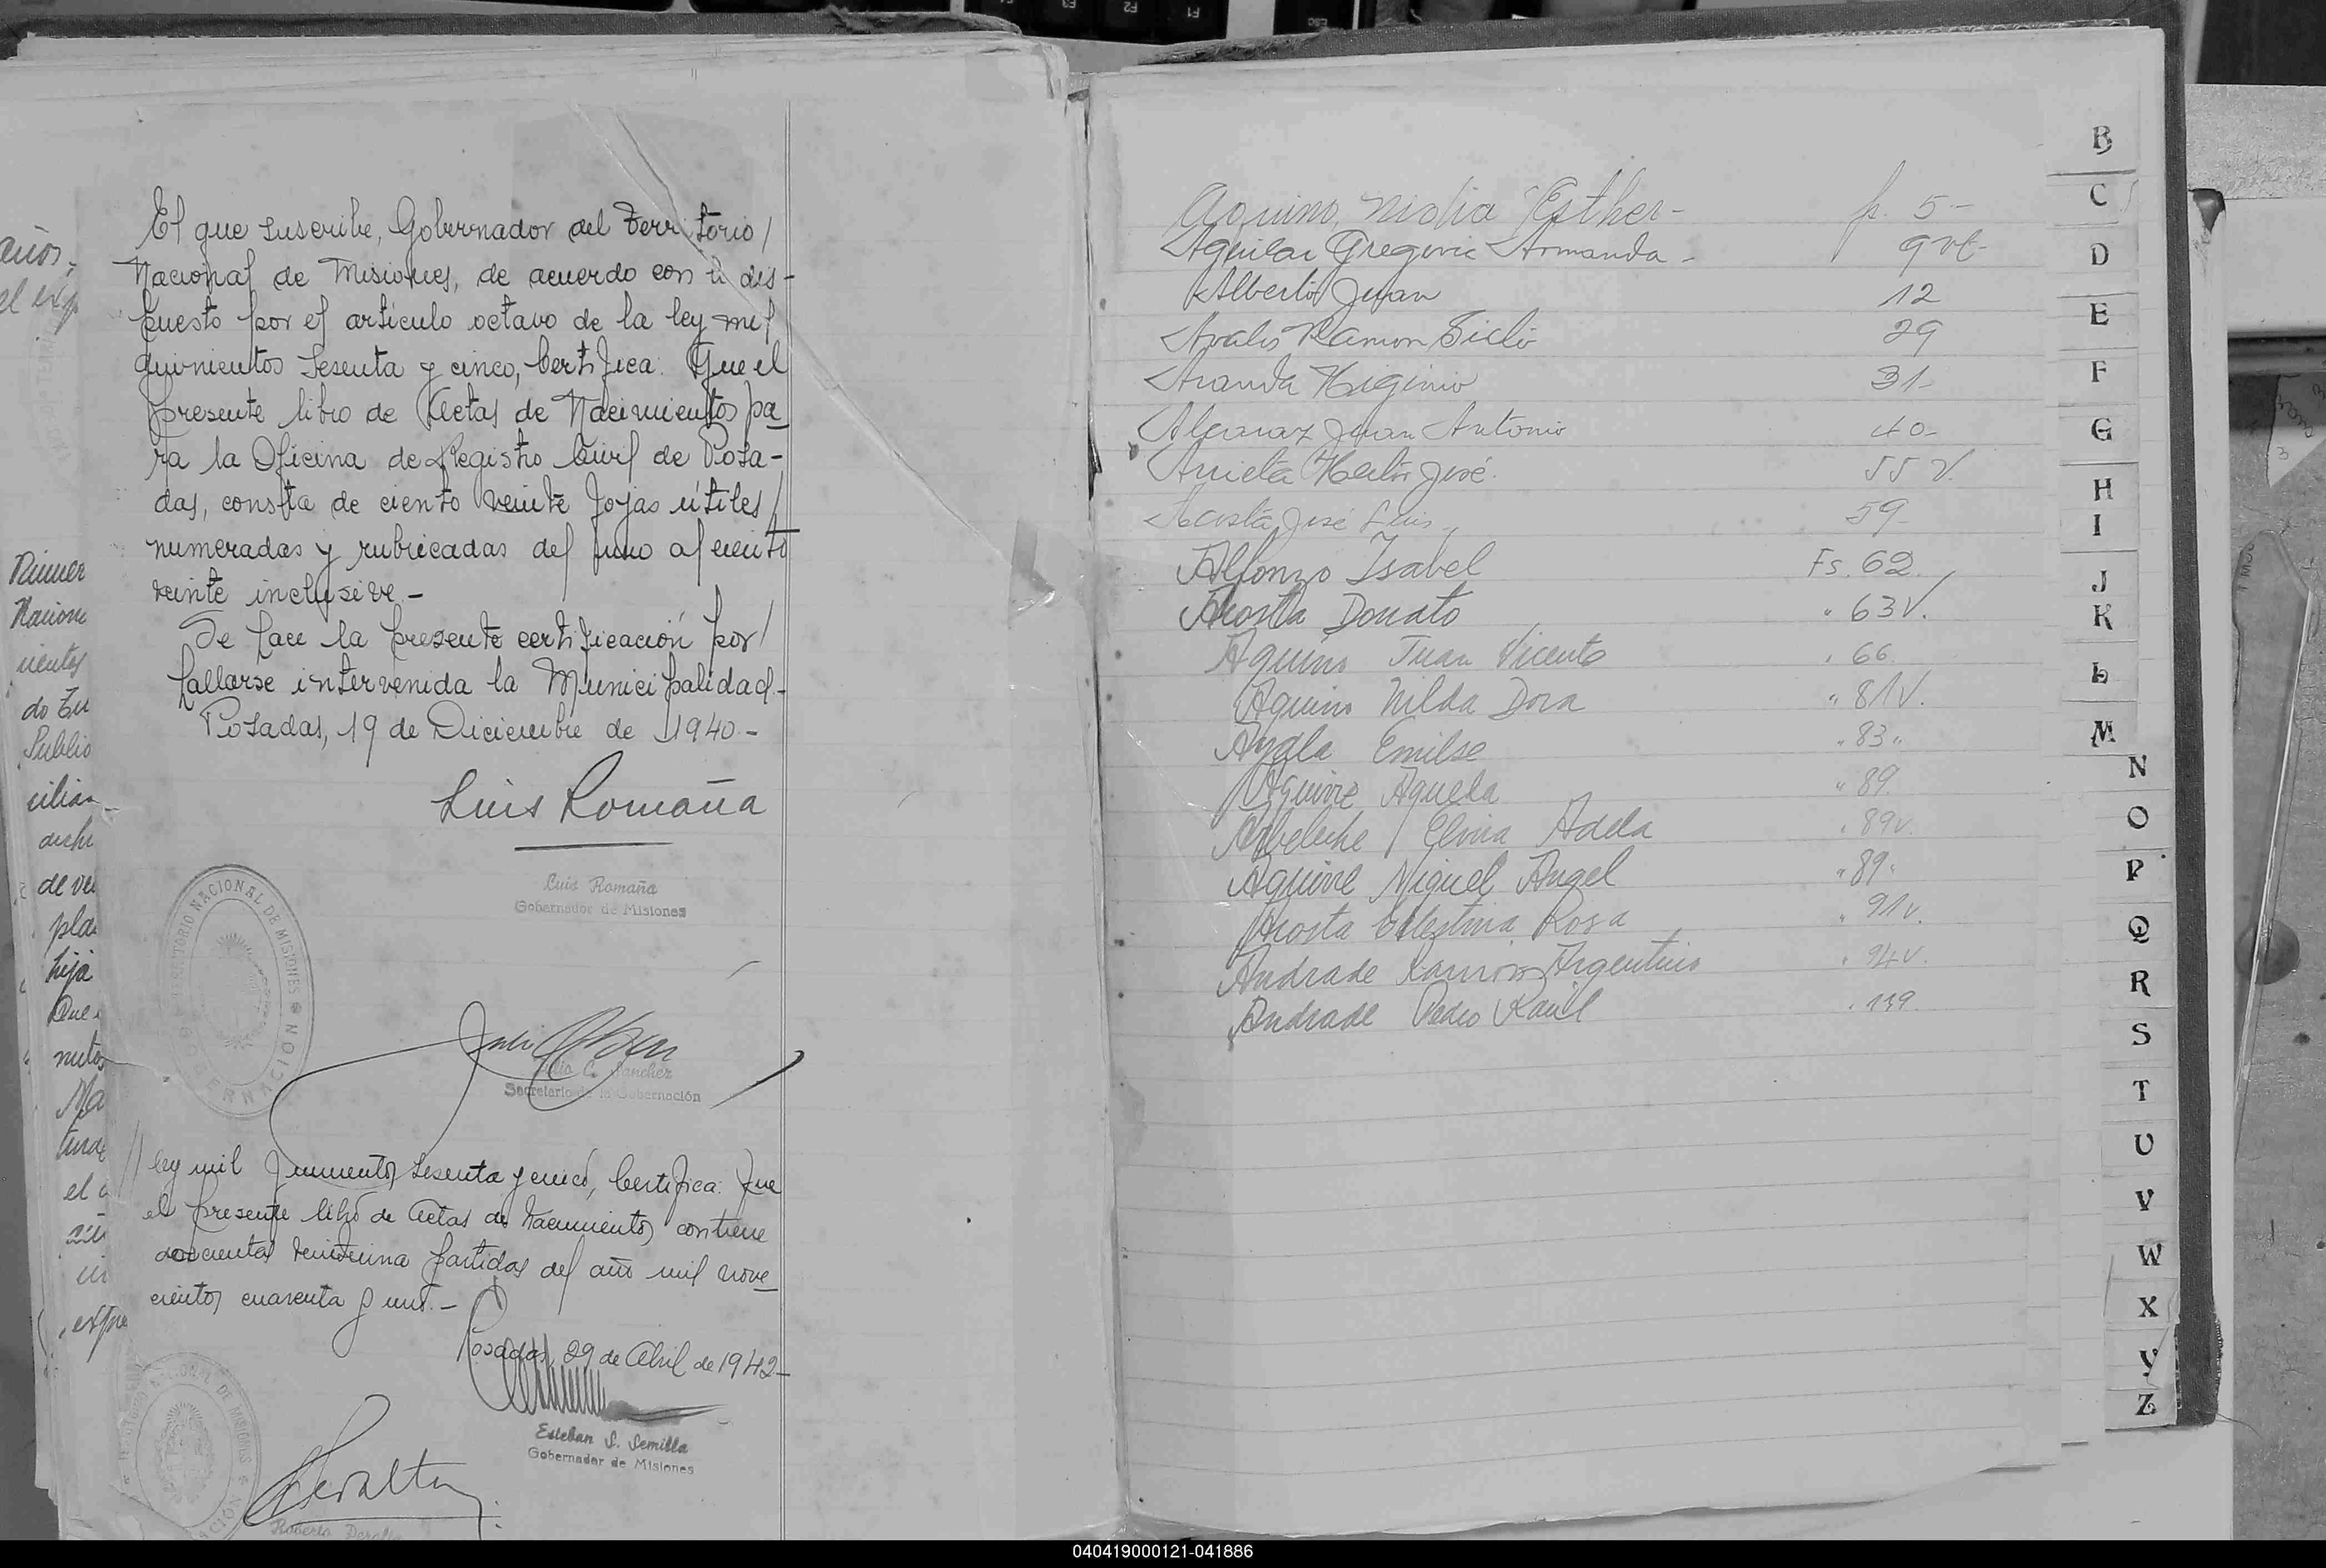 El que suscribe, Gobernador del Territorio/
Nacional de Misiones, de acuerdo con lo dis-
puesto por el artículo octavo de la ley mil
quinientos sesenta y cinco, Certifica: Que el
presente libro de Actas de Nacimientos pa
ra la Oficina de Registro Civil de Posa-
das, consta de ciento veinte fojas útiles/
numeradas y rubricadas del uno al ciento
veinte inclusive.-
Se hace la presente certificación por/
hallarse intervenida la Municipalidad.-
Posadas, 19 de Diciembre de 1940.-
Luis Romaña
Luis Romaña
Gobernador de Misiones
TERRITORIO NACIONAL DE MISIONES
GOBERNACION
Julio C. Sanchez
Secretario de la Gobernación
//ley mil quinientos sesenta y cinco, Certifica: Que
el presente libro de Actas de Nacimientos contiene
doscientas veintiuna partidas del año mil nove
cientos cuarenta y uno.-
Posadas, 29 de Abril de 1942-
Esteban S. Semilla
Gobernador de Misiones
Peralta
Roberto Peralta
años,
Nacion
do Zu
Public
de ve
pla
hija
Que
Ma
el
Aquino, Nidia Esther- f. 5-
Aguilar Gregoria Armanda- 9 vt-
Alberto Juan 12
Avalos Ramon Sicto 29
Aranda Higinio 31-
Alcaraz Juan Antonio 40-
Arrieta Hector José. 55 V.
Acosta José Luis- 59-
Alfonzo Isabel Fs. 62.
Acosta Donato " 63V.
Aquino Juan Vicente " 66.
Aquino Nilda Dora " 81V.
Ayala Emilse " 83"
Aguirre Aquela " 89.
Arbeleche Elvira Adela " 89v.
Aguirre Miguel Angel " 89"
Acosta Celestina Rosa " 91v.
Andrade Ramón Argentino " 94v.
Andrade Pedro Raúl " 119.
B
C
D
E
F
G
H
I
J
K
L
M
N
O
P
Q
R
S
T
U
V
W
X
Y
Z
F3
F2
F1
ESC
040419000121-041886